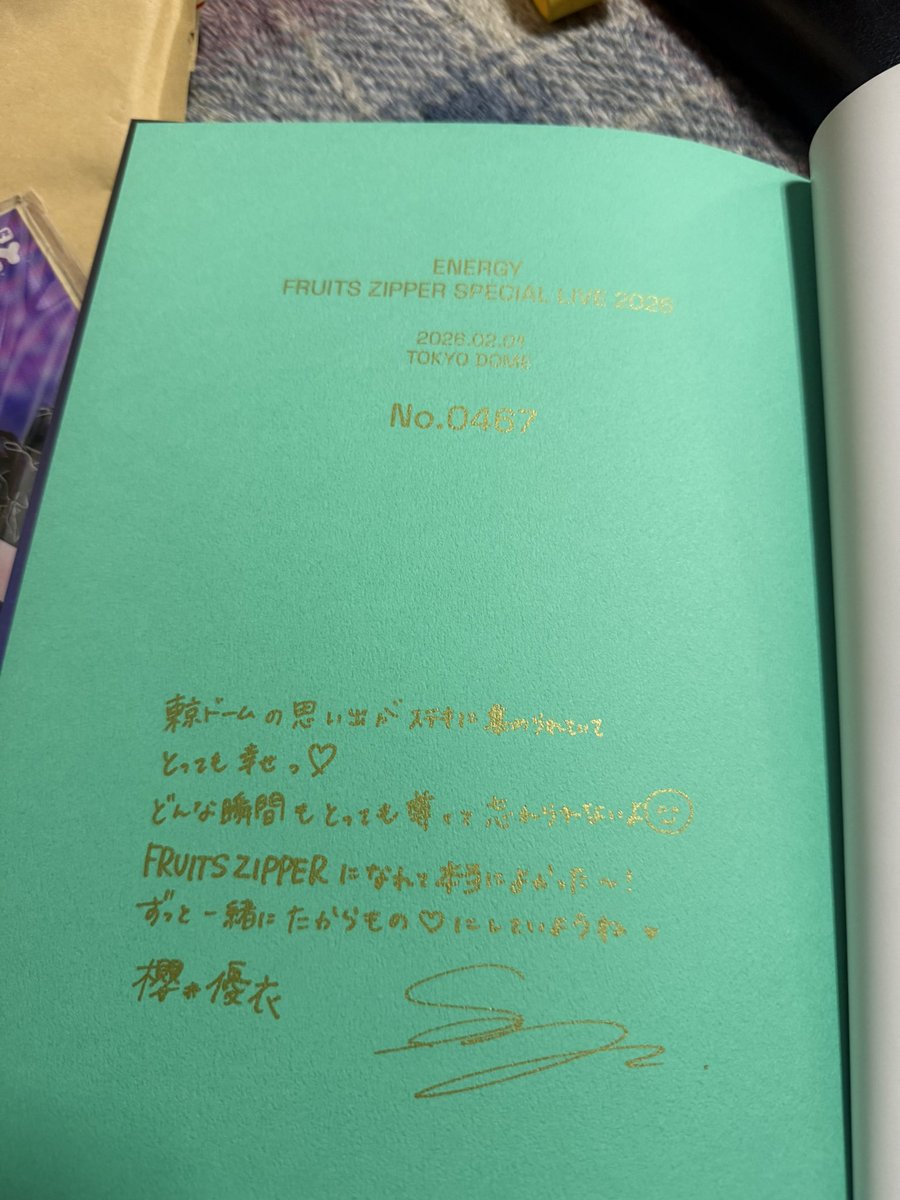 ENERGY
FRUITS ZIPPER SPECIAL LIVE 2026
2026.02.01
TOKYO DOME
No.0467
東京ドームの思い出がステキに集められていて
とっても幸せっ♡
どんな瞬間もとっても尊くて忘れられないよ
FRUITS ZIPPERになれて本当によかった〜!
ずっと一緒にたからもの♡にしていようね
櫻井優衣